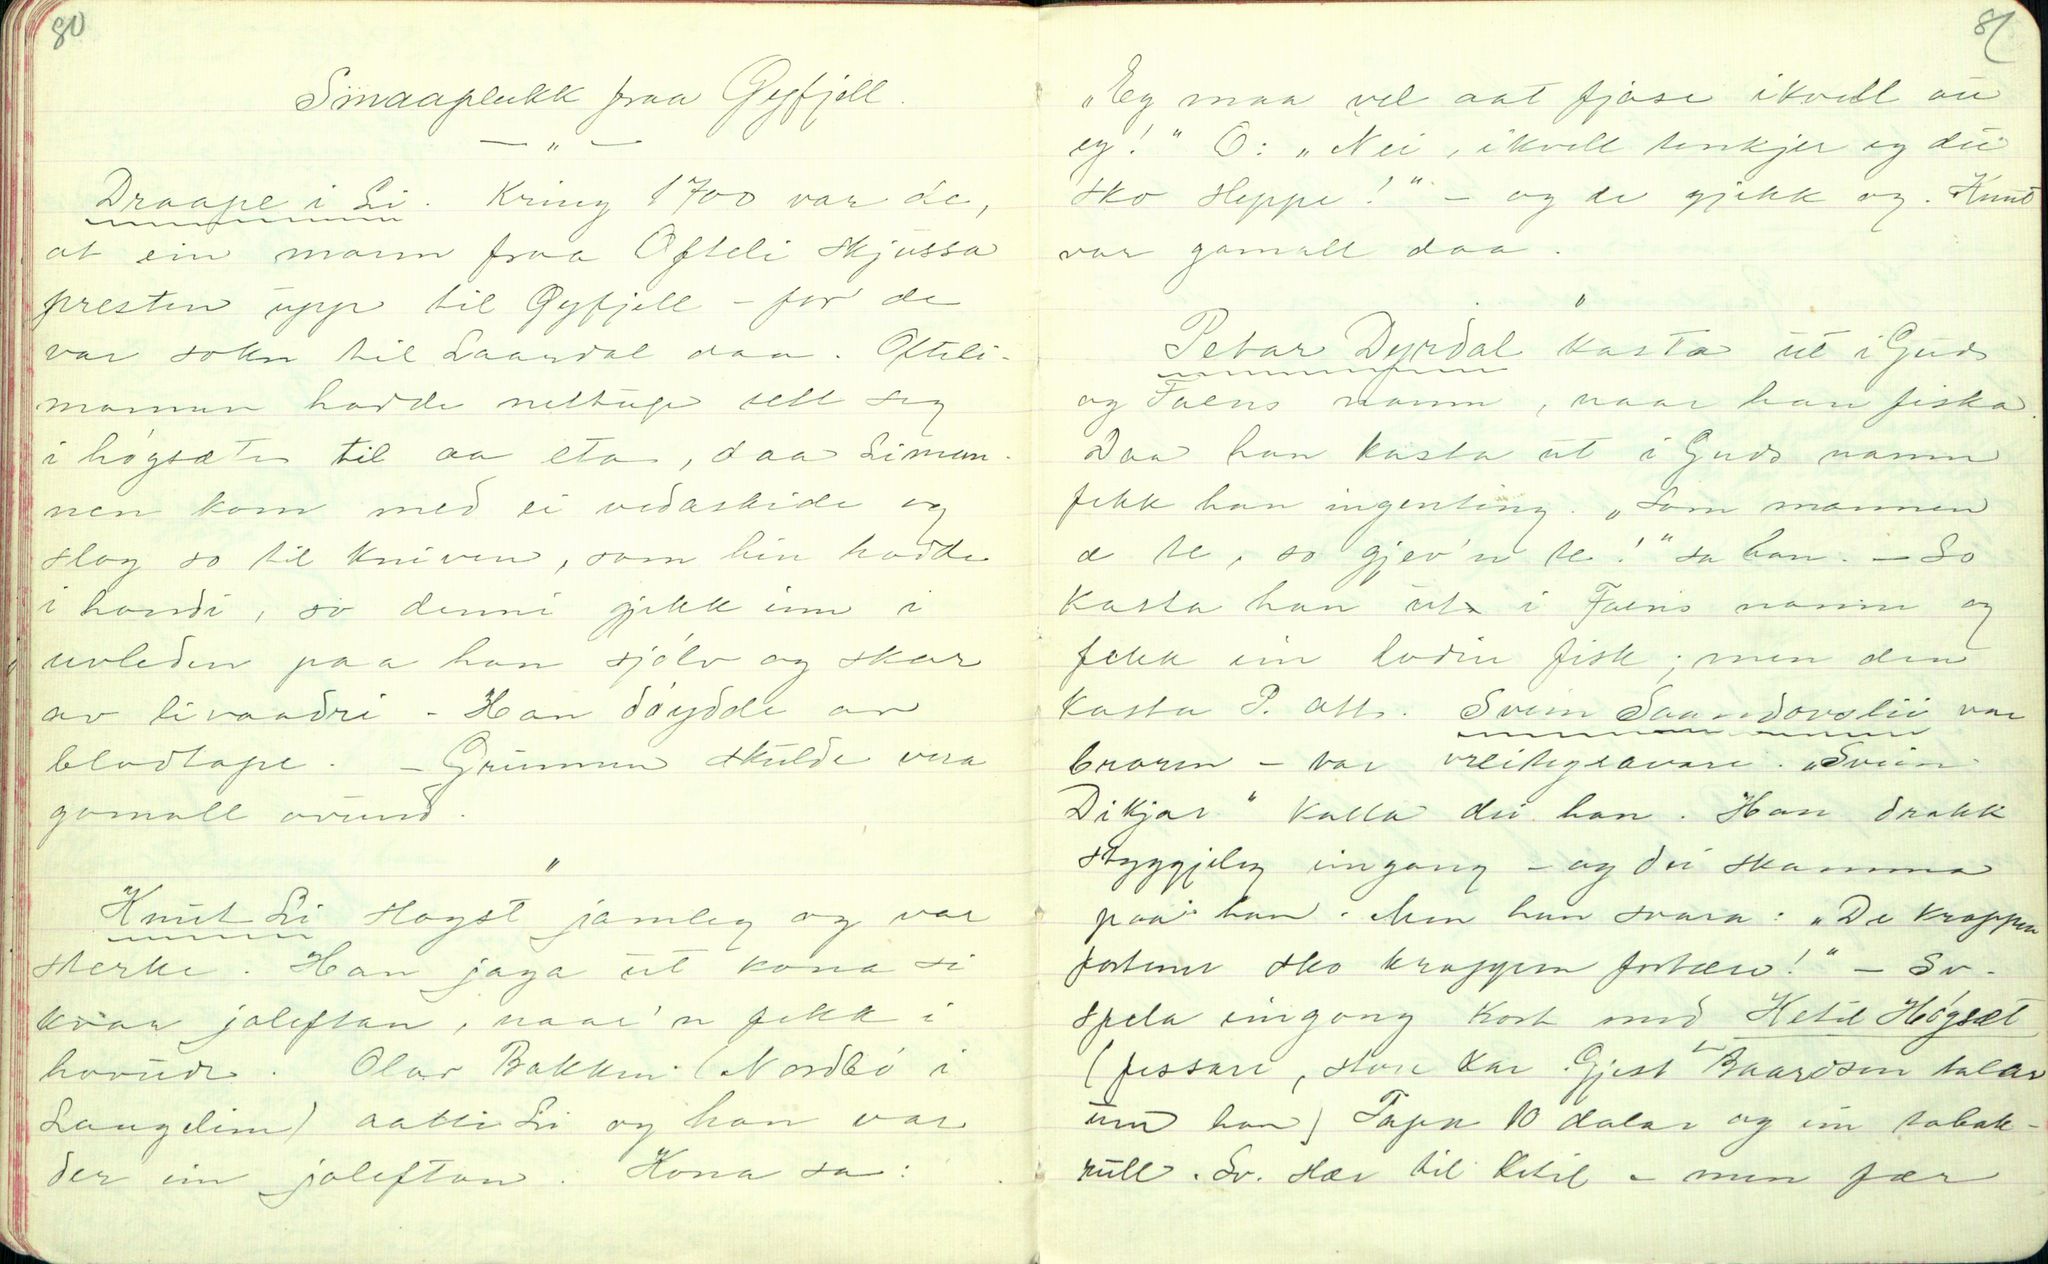 80
Smaaplukk fraa Gyfjell.
— " —
Draape i Li. Kring 1700 var de,
at ein mann fraa Ofteli skjussa
presten upp til Gyfjell – for de
var sokn til Laardal daa. Ofteli-
mannen hadde nettupp sett seg
i høgsæte til aa eta, daa Liman-
nen kom med ei vedaskide og
slog so til kniven, som hin hadde
i handi, so denni gjekk inn i
uvleden paa han sjølv og skar
av livaadri – Han døydde av
blodtape. – Grunnen skulde vera
gamall ovund.
"
Knut Li slogst jamleg og var
sterke. Han jaga ut kona si
kvar joleftan, naar'n fekk i
hovude. Olav Bakken (Nordbø i
Langelim) aatti Li og han var
der ein joleftan. Kona sa:
81
„Eg maa vel aat fjøse ikvell au
eg!" O: „Nei, ikvell tenkjer eg du
sko sleppe!" – og de gjekk og. Knut
var gamall daa.
"
Petar Dyrdal kasta ut i Guds
og Faens namn, naar han fiska.
Daa han kasta ut i Guds namn
fekk han ingenting. „Som mannen
æ te, so gjev'n te!" sa han. – So
kasta han ut i Faens namn og
fekk ein lodin fisk; men den
kasta P. att. Svein Saandovslii var
broren – var vreitegravare. „Svein
Dikjar" kalla dei han. Han drakk
styggjeleg eingong – og dei skamma
paa han. Men han svara: „De kroppen
fortener sko kroppen fortære!" – Sv.
spela eingong kort med Ketil Høgsæt
(fessare, stor kar Gjest Baardsen talar
um han) Tapa 10 dalar og ein tobak-
rull. Sv. slær til Ketil – men fær